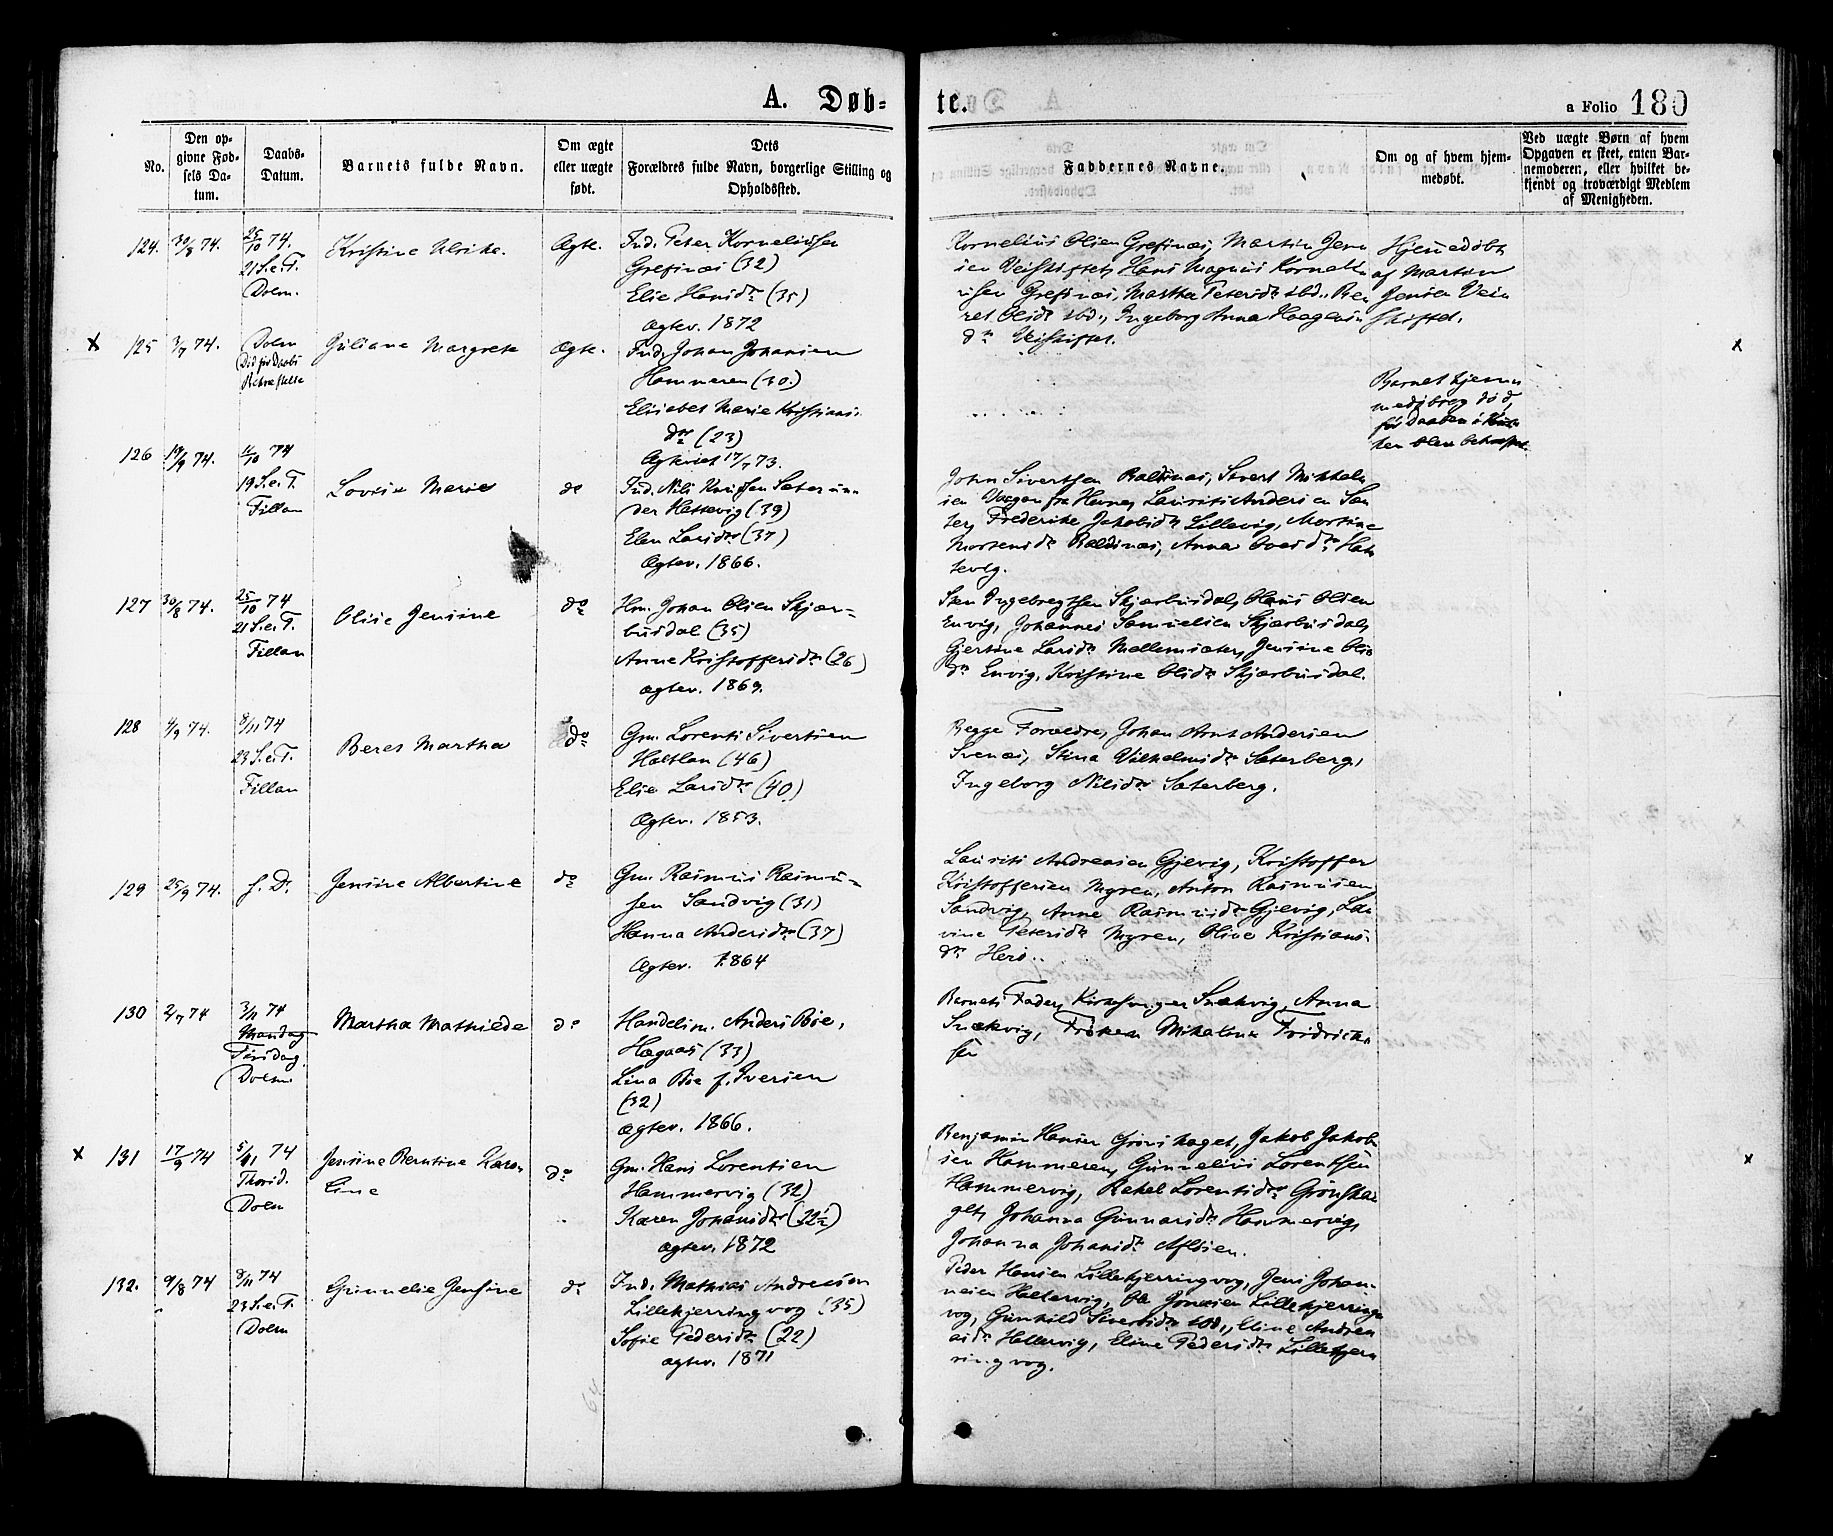 A. Døb-
te.
a Folio 180
No.
Den op-
givne Fød-
sels Da-
tum.
Daabs-
Datum.
Barnets fulde Navn.
Om ægte
eller uægte
født.
Dets
Forældres fulde Navn, borgerlige Stilling og
Opholdssted.
Faddernes Navne.
Om og af hvem hjem-
medøbt.
Ved uægte Børn af hvem
Opgaven er skeet, enten Bar-
nemoderen, eller hvilket be-
kjendt og troværdigt Medlem
af Menigheden.
124.
30/8 74.
25/10 74.
21 S.e.T.
Dolm.
Kristine Ulrike.
Ægte.
Ind. Peter Korneliusen
Grefsnæs (32)
Elie Hansdr (35)
Ægtev. 1872
Kornelius Olsen Grefsnæs, Martin Jen
sen Veiskiftet, Hans Magnus Korneli
usen Grefsnæs, Martha Petersdr ibd., Ber
ret Olsdr ibd., Ingeborg Anna Haagens
dr Veiskiftet.
Hjemmedøbt
af Martin
Jensen Vei
skiftet.
x 125
3/7 74.
Dolm
Død før Daabs
Bekræftelse
Juliane Margrete
Ægte.
Ind. Johan Johansen
Hammeren (30.)
Elisabet Marie Kristians-
dr (23)
Ægteviet 17/7 73.
Barnet hjem
medøbt og død,
før Daaben i Kir
ken blev bekræftet
x
126
19/9 74.
11/10 74
19 S.e.T.
Fillan
Lovise Marie
do
Ind. Nils Sæter un-
der Hattevig (39)
Elen Larsdr (37)
Ægtev. 1866.
John Sivertsen Baldsnæs, Sivert Mikkel
sen Vaagan fra Hevne, Laurits Andersen Sæ
ter, Frederike Jakobsdr Lillevig, Martine
Mortensdr Baldsnæs, Anna dr Hat
tevig.
127
30/8 74.
25/10 74
21 S.e.T.
Fillan
Olise Jensine
do
Hm. Johan Olsen Skjær-
busdal (35)
Anne Kristoffersdr (26)
ægtev. 1869.
Sten Ingebregtsen Skjærbusdal, Olaus Olsen
Envig, Johannes Samuelsen Skjærbusdal,
Gjertine Larsdr Mellemsæter, Jensine Ols
dr Envig, Kristine Olsdr Skjærbusdal.
128
4/9 74.
8/11 74
23 S.e.T.
Fillan
Beret Martha
do
Gm. Lorents Sivertsen
Haltlan (46)
Elie Larsdr (40)
Ægtev. 1853.
Begge Forældre, Johan Arnt Andersen
Svenæs, Stina Vilhelmsdr Sæterberg,
Ingeborg Nilsdr Sæterberg.
129
25/9 74.
s. D.
Jensine Albertine
do
Gm. Rasmus Rasmu-
sen Sandvig (31)
Hanna Andersdr (37)
Ægtev. 1864
Laurits Andreasen Gjevig, Kristoffer
Kristoffersen Myren, Anton Rasmusen
Sandvig, Anne Rasmusdr Gjevig, Lo
vine Petersdr Myren, Oline Kristians-
dr Hero.
130
2/7 74
3/11 74
Mandag
Tirsdag
Dolm.
Martha Mathilde
do
Handelsm. Anders Bie,
Hegaas (33)
Lina Bie f. Iversen
(32)
ægtev. 1866.
Barnets Fader, Kirkesanger Snekvig, Anna
Snekvig, Frøken Mikaline Fridrich
sen
x 131
17/9 74
5/11 74
Thorsd.
Dolm
Jensine Berntine Karo
line
do
Gm. Hans Lorentsen
Hammervig (32)
Karen Johansdr (22½)
ægtev. 1872
Benjamin Hansen Grønskaget, Jakob Jakob
sen Hammeren, Gunnelius Lorentsen
Hammervig, Rakel Lorentsdr Grønska
get, Johanna Gunnarsdr Hammervig,
Johanna Johansdr Afløsen.
x
132.
9/8 74
8/11 74
23 S.e.T.
Dolm
Gunnelie Jensine
do
Ind. Mathias Andreasen
Lillekjerringvog (35)
Sofie Pedersdr (22)
ægtev. 1871
Peder Hansen Lillekjerringvog, Jens Johan-
nesen Hallervig, Ole Jonasen Lillekjerring
vog, Gunhild Sivertsdr ibd., Eline Andrea
sdr Hallervig, Eline Pedersdr Lillekjer
ringvog.
64